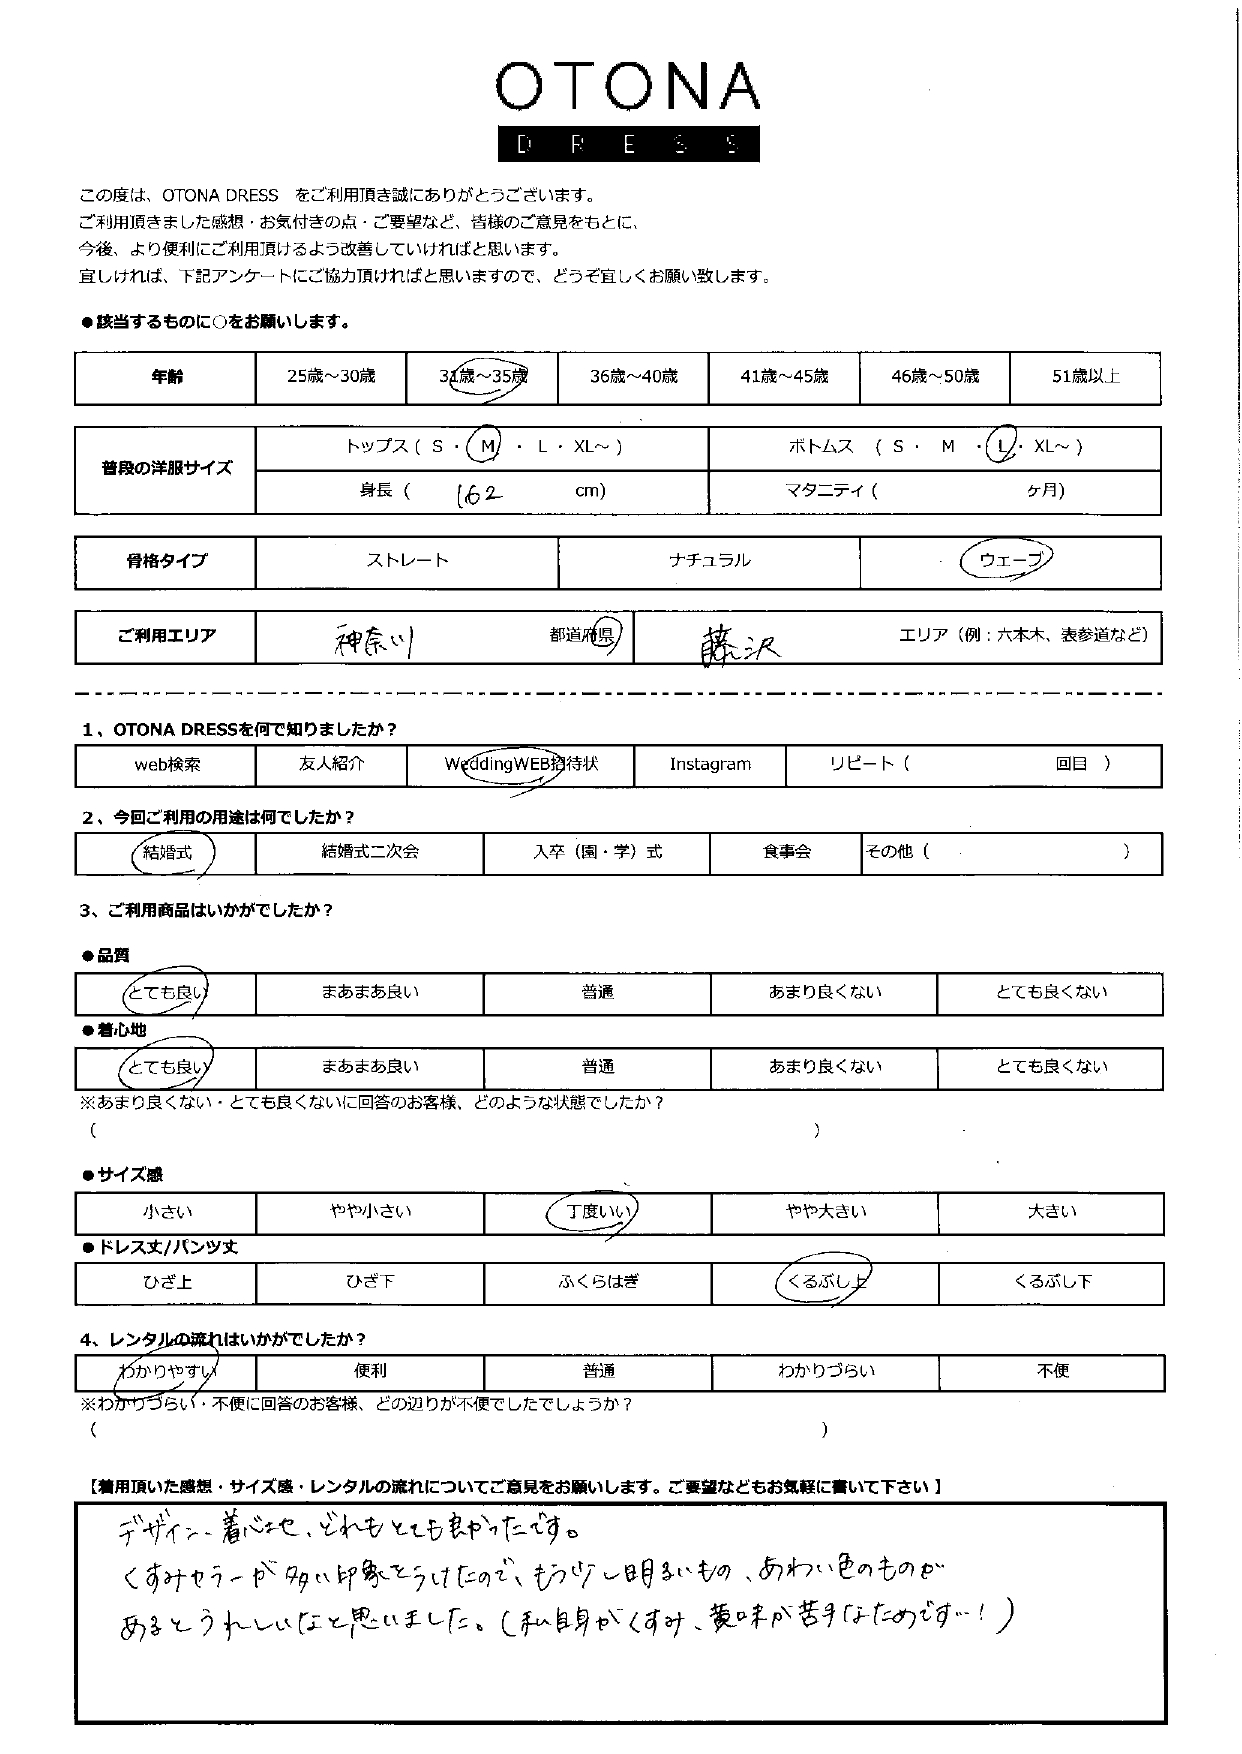 OTONA
DRESS
この度は、OTONA DRESS をご利用頂き誠にありがとうございます。
ご利用頂きました感想・お気付きの点・ご要望など、皆様のご意見をもとに、
今後、より便利にご利用頂けるよう改善していければと思います。
宜しければ、下記アンケートにご協力頂ければと思いますので、どうぞ宜しくお願い致します。
●該当するものに○をお願いします。
年齢 25歳～30歳 31歳～35歳 36歳～40歳 41歳～45歳 46歳～50歳 51歳以上
普段の洋服サイズ トップス ( S ・ M ・ L ・ XL～ ) ボトムス ( S ・ M ・ L ・ XL～ )
身長 ( 162 cm) マタニティ ( ヶ月)
骨格タイプ ストレート ナチュラル ウェーブ
ご利用エリア 神奈川 都道府県 藤沢 エリア（例：六本木、表参道など）
1、OTONA DRESSを何で知りましたか？
web検索 友人紹介 WeddingWEB招待状 Instagram リピート（ 回目 ）
2、今回ご利用の用途は何でしたか？
結婚式 結婚式二次会 入卒（園・学）式 食事会 その他（ ）
3、ご利用商品はいかがでしたか？
●品質
とても良い まあまあ良い 普通 あまり良くない とても良くない
●着心地
とても良い まあまあ良い 普通 あまり良くない とても良くない
※あまり良くない・とても良くないに回答のお客様、どのような状態でしたか？
（ ）
●サイズ感
小さい やや小さい 丁度いい やや大きい 大きい
●ドレス丈/パンツ丈
ひざ上 ひざ下 ふくらはぎ くるぶし上 くるぶし下
4、レンタルの流れはいかがでしたか？
わかりやすい 便利 普通 わかりづらい 不便
※わかりづらい・不便に回答のお客様、どの辺りが不便でしたでしょうか？
（ ）
【着用頂いた感想・サイズ感・レンタルの流れについてご意見をお願いします。ご要望などもお気軽に書いて下さい】
デザイン、着心地、どれもとても良かったです。
くすみカラーが多い印象をうけたので、もう少し明るいもの、あわい色のものが
あるとうれしいなと思いました。(私自身がくすみ、黄味が苦手なためです…！)